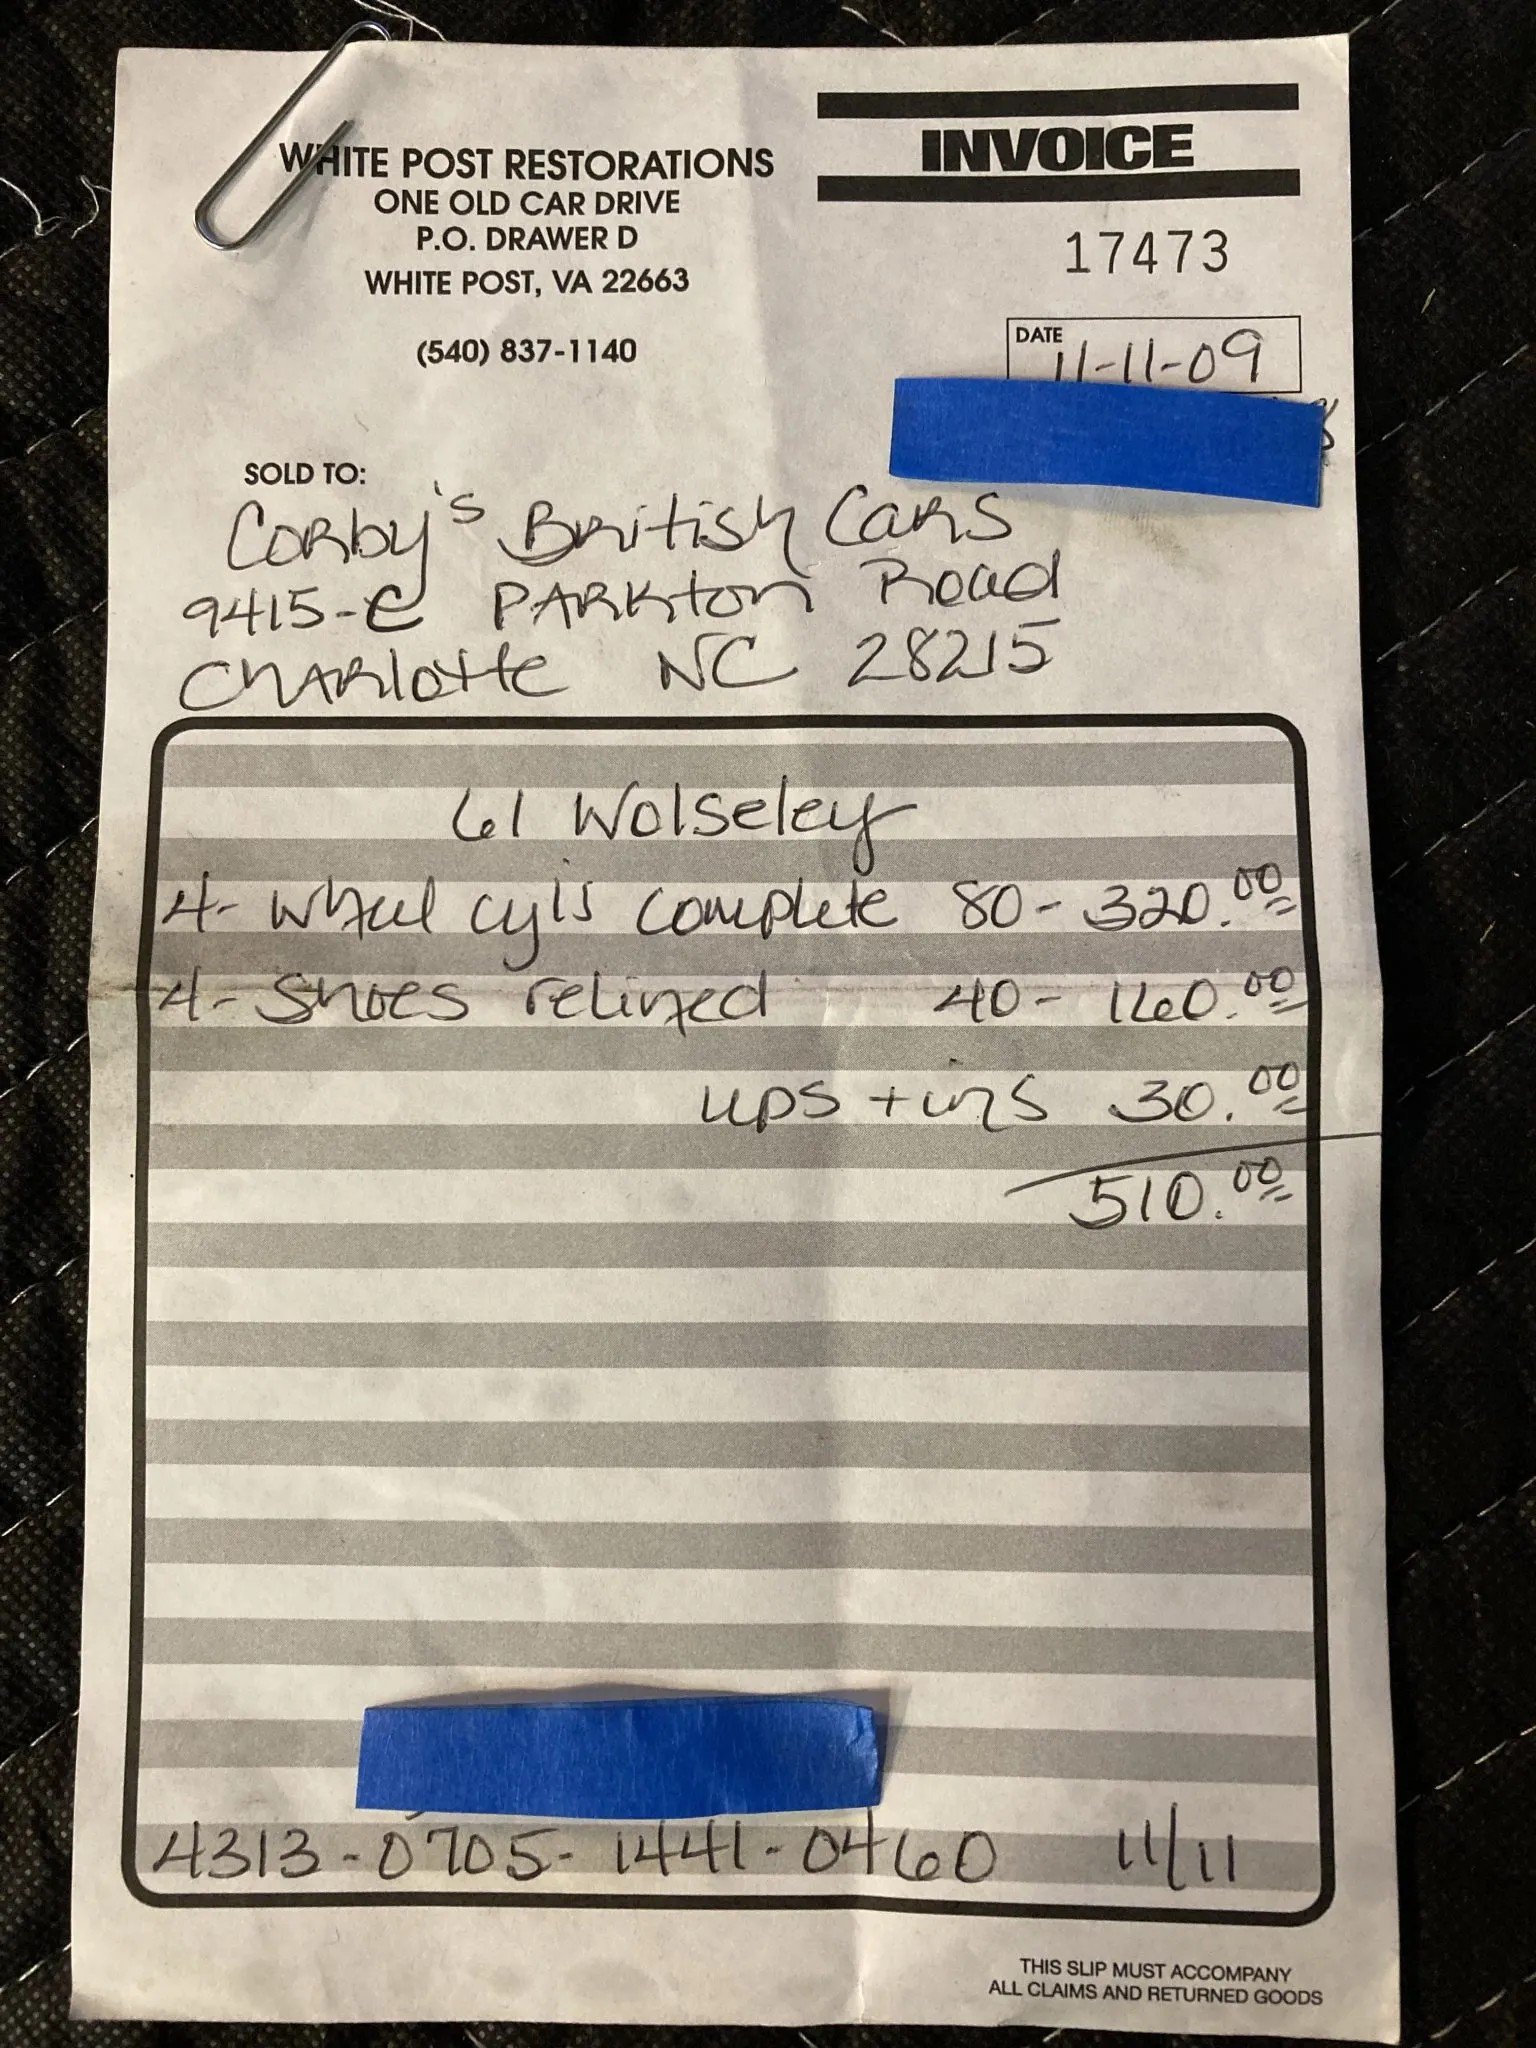 WHITE POST RESTORATIONS
ONE OLD CAR DRIVE
P.O. DRAWER D
WHITE POST, VA 22663
(540) 837-1140
INVOICE
17473
DATE 11-11-09
SOLD TO:
Corby's British Cars
9415-C Parkton Road
Charlotte NC 28215
61 Wolseley
4- wheel cyls complete 80- 320.00
4- Shoes relined 40- 160.00
ups + ins 30.00
510.00
4313-0705-1441-0460 11/11
THIS SLIP MUST ACCOMPANY
ALL CLAIMS AND RETURNED GOODS